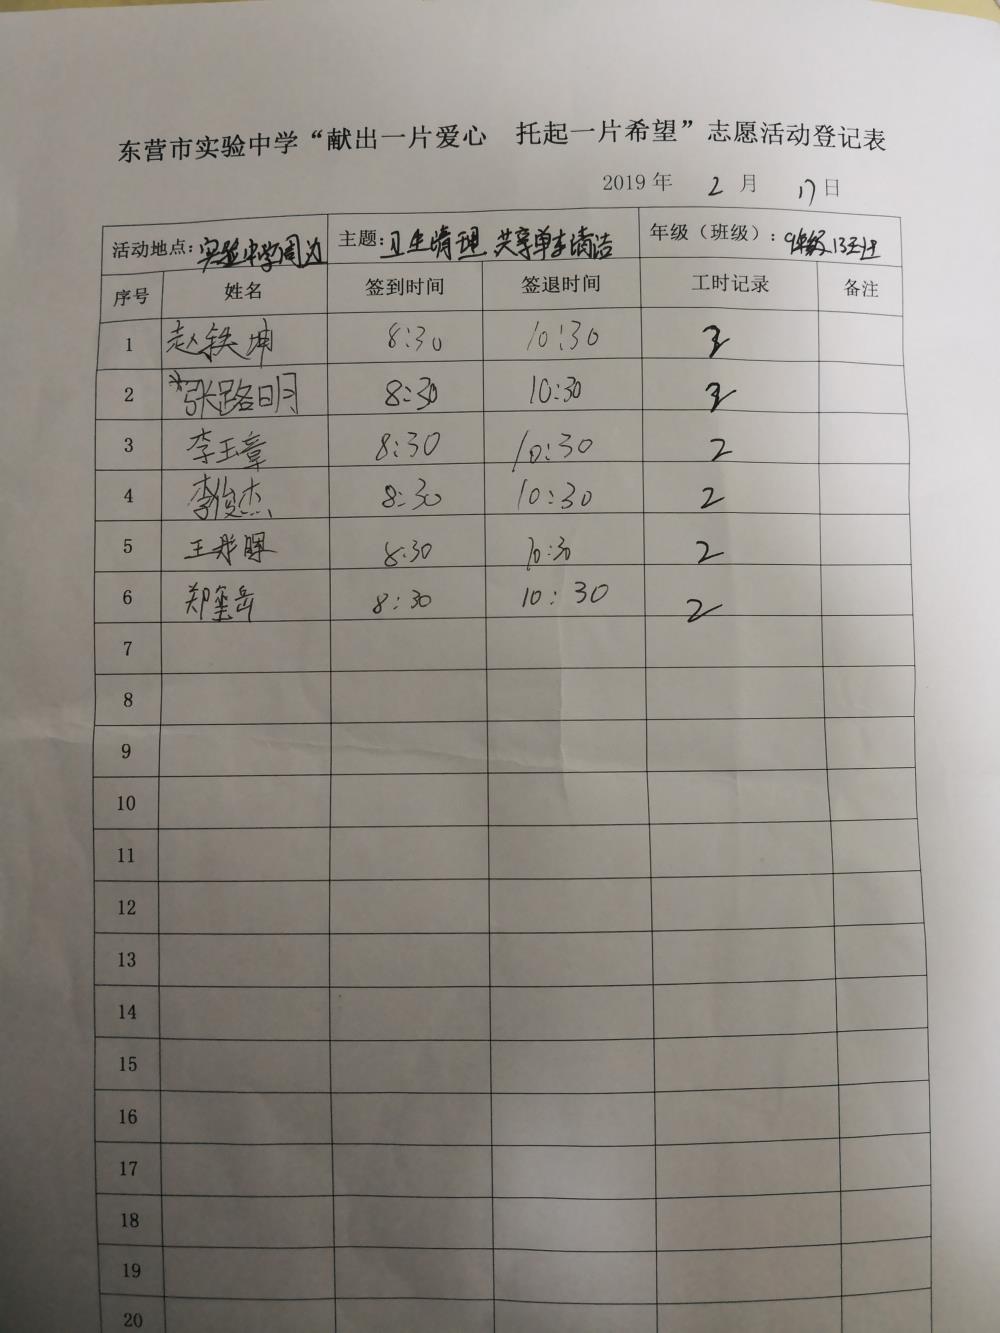 东营市实验中学“献出一片爱心 托起一片希望”志愿活动登记表
2019 年 2 月 17 日
活动地点：实验中学周边 主题：卫生清理 共享单车清洁 年级（班级）：9年级13班
序号 姓名 签到时间 签退时间 工时记录 备注
1 赵铁坤 8:30 10:30
2 张路明 8:30 10:30
3 李玉章 8:30 10:30 2
4 李俊杰 8:30 10:30 2
5 王彤晖 8:30 10:30 2
6 郑玺岳 8:30 10:30 2
7
8
9
10
11
12
13
14
15
16
17
18
19
20